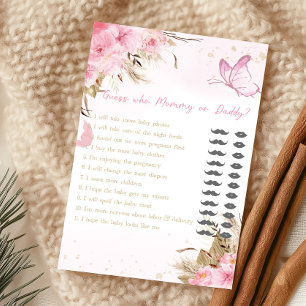 Guess who Mommy or Daddy?
1. I will take more baby photos
2. I will take care of the night feeds
3. found out we were pregnant first
4. I buy the most baby clothes
5. I'm enjoying the pregnancy
6. I will change the most diapers
7. I want more children
8. I hope the baby gets my
9. I will spoil the baby most
10. I'm more nervous about labor & delivery
11. I hope the baby looks like me